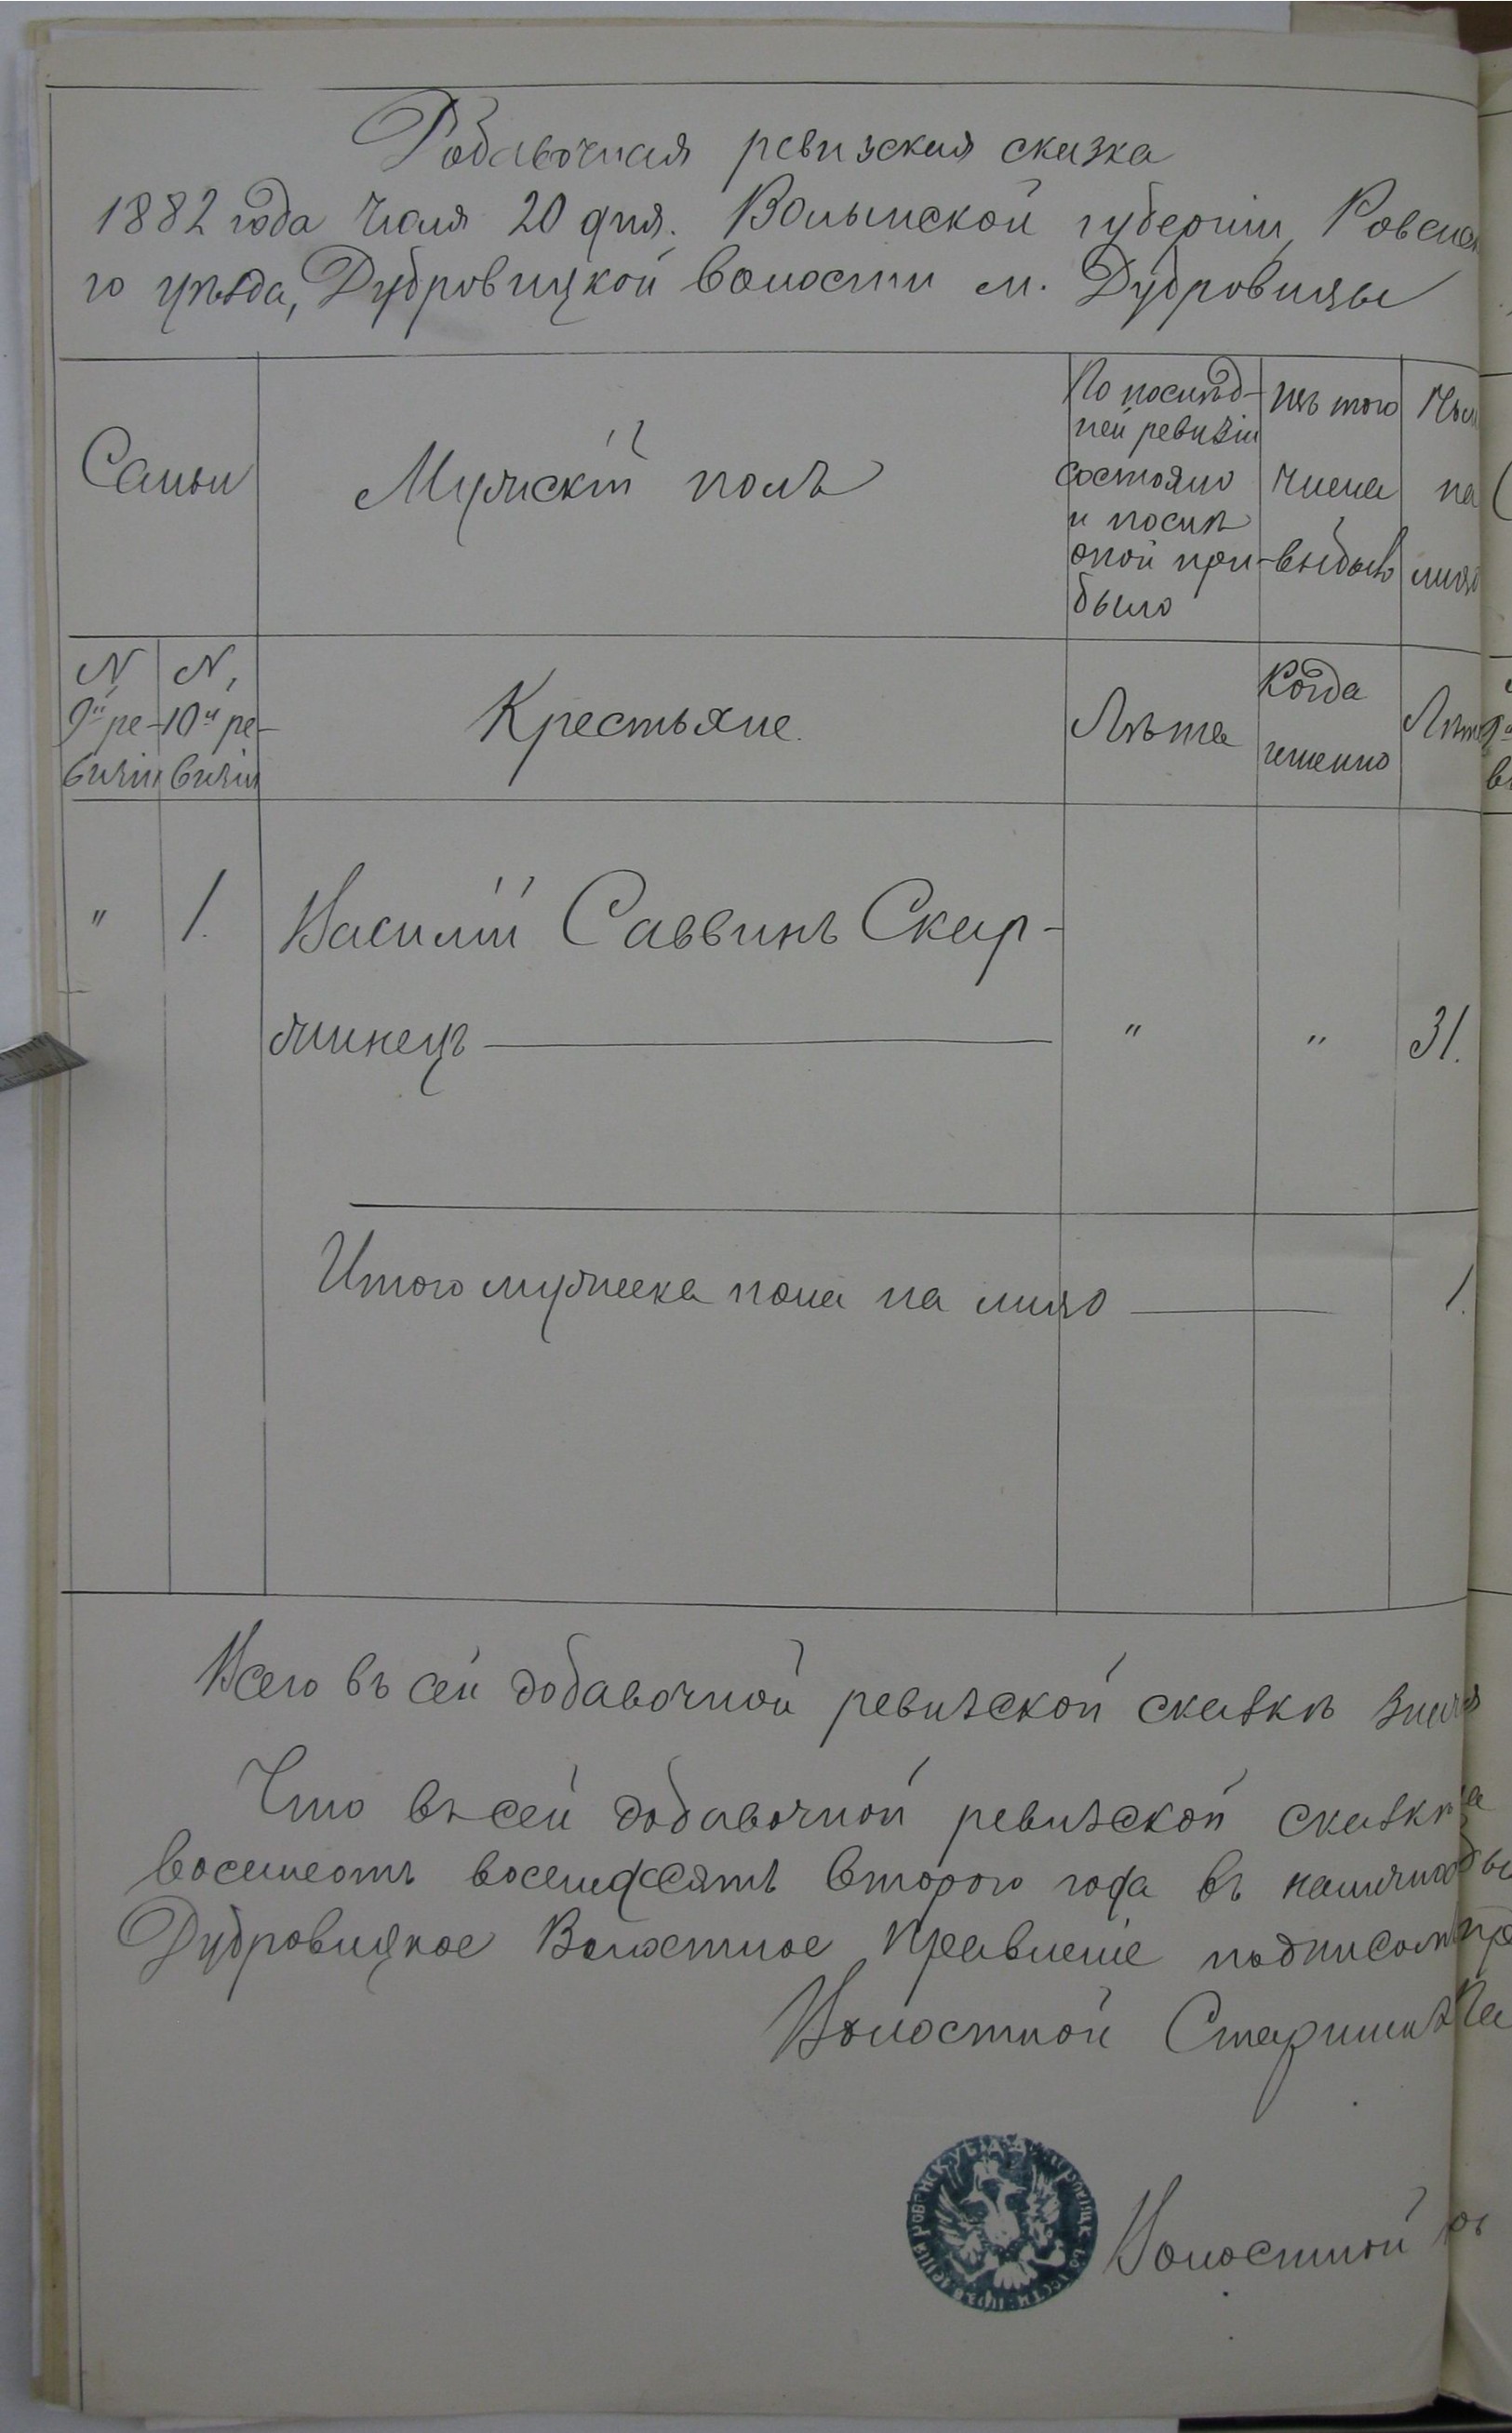 Добавочная ревизская сказка
1882 года Июля 20 дня. Волынской губерніи, Ровенска
го уѣзда, Дубровицкой волости м. Дубровицы
Семьи
Мужскій полъ
По послѣд-
ней ревизіи
состояло
и послѣ
оной при-
было
изъ того
числа
выбыло
на
лицо
N
9й ре-
визіи
N,
10й ре-
визіи
Крестьяне.
Лѣта
Когда
именно
Лѣт
" 1. Василій Саввинъ Скир-
минецъ " " 31.
Итого мужска пола на лицо 1.
Всего въ сей добавочной ревизской сказкѣ
Что въ сей добавочной ревизской сказкѣ
восемьсотъ восемдесятъ второго года въ
Дубровицкое Волостное Правленіе подписомъ
Волостной Старшина
Волостной